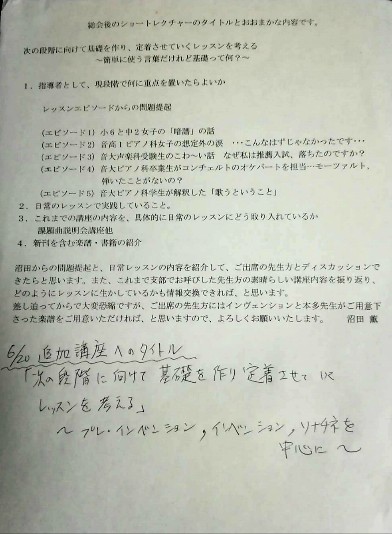 総会後のショートレクチャーのタイトルとおおまかな内容です。
次の段階に向けて基礎を作り、定着させていくレッスンを考える
～簡単に使う言葉だけれど基礎って何?～
1．指導者として、現段階で何に重点を置いたらよいか
レッスンエピソードからの問題提起
(エピソード1）小6と中2女子の「暗譜」の話
(エピソード2）音高1ピアノ科女子の想定外の涙 ‥‥こんなはずじゃなかったです‥‥
(エピソード3）音大声楽科受験生のこわ～い話 なぜ私は推薦入試、落ちたのですか？
(エピソード4）音大ピアノ科卒業生がコンチェルトのオケパートを担当―モーツァルト、
弾いたことがないの？
(エピソード5）音大ピアノ科学生が解釈した「歌うということ」
2．日常のレッスンで実践していること。
3．これまでの講座の内容を、具体的に日常のレッスンにどう取り入れているか
課題曲説明会講座他
4．新刊を含む楽譜・書籍の紹介
沼田からの問題提起と、日常レッスンの内容を紹介して、ご出席の先生方とディスカッションで
きたらと思います。また、これまで支部でお呼びした先生方の素晴らしい講座内容を振り返り、
どのようにレッスンに生かしているかも情報交換できれば、と思います。
差し迫ってからで大変恐縮ですが、ご出席の先生方にはインヴェンションと本多先生がご用意下
さった楽譜をご用意いただければ、と思いますので、よろしくお願いいたします。 沼田 薫
6/20 追加講座へのタイトル
「次の段階に向けて基礎を作り定着させていく
レッスンを考える」
～プレ・インベンション，インベンション，ソナチネを
中心に～